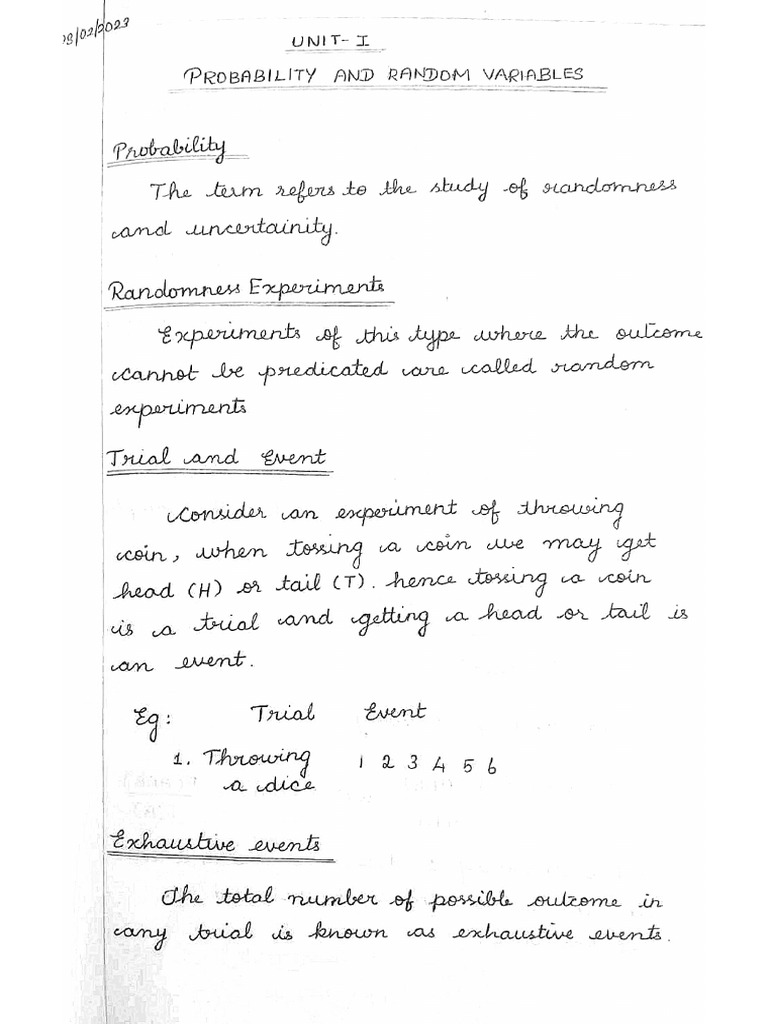 08/02/2023
UNIT-I
PROBABILITY AND RANDOM VARIABLES
Probability
The term refers to the study of randomness
and uncertainity.
Randomness Experiments
Experiments of this type where the outcome
cannot be predicated are called random
experiments
Trial and Event
Consider an experiment of throwing
coin, when tossing a coin we may get
head (H) or tail (T). hence tossing a coin
is a trial and getting a head or tail is
an event.
Eg: Trial Event
1. Throwing 1 2 3 4 5 6
a dice
Exhaustive events
The total number of possible outcome in
any trial is known as exhaustive events.